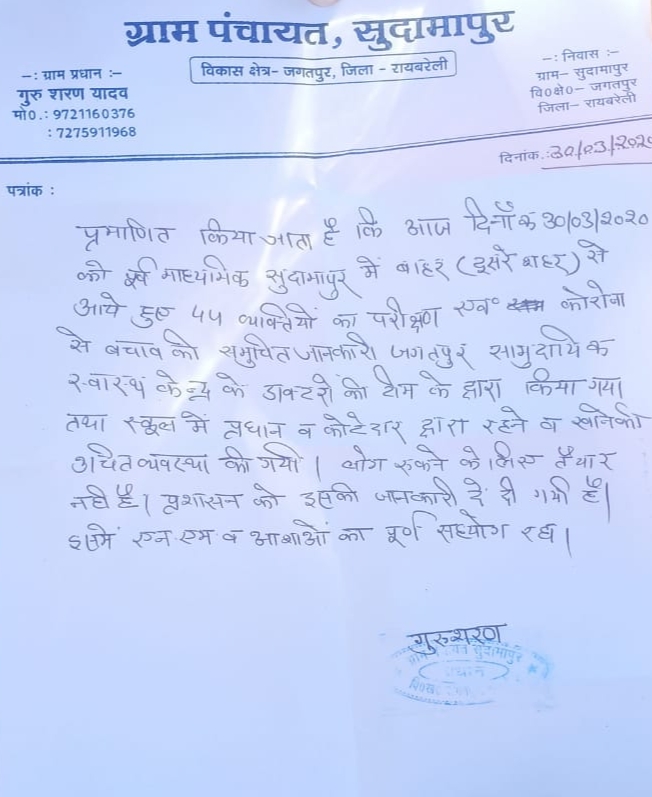 ग्राम पंचायत, सुदामापुर
विकास क्षेत्र- जगतपुर, जिला - रायबरेली
-: ग्राम प्रधान :-
गुरु शरण यादव
मो०.: 9721160376
: 7275911968
-: निवास :-
ग्राम- सुदामापुर
वि०क्षे०- जगतपुर
जिला- रायबरेली
दिनांक.: 30/03/2020
पत्रांक :
प्रमाणित किया जाता है कि आज दिनाँक 30/03/2020
को पूर्व माध्यमिक सुदामापुर में बाहर (दूसरे शहर) से
आये हुए 45 व्यक्तियों का परीक्षण एवं कोरोना
से बचाव की समुचित जानकारी जगतपुर सामुदायिक
स्वास्थ केन्द्र के डाक्टरों की टीम के द्वारा किया गया
तथा स्कूल में प्रधान व कोटेदार द्वारा रहने व खानेकी
उचित व्यवस्था की गयी। लोग रुकने के लिए तैयार
नही है। प्रशासन को इसकी जानकारी दे दी गयी है।
इसमें एन एम व आशाओं का पूर्ण सहयोग रहा।
गुरुशरण
सुदामापुर
प्रधान